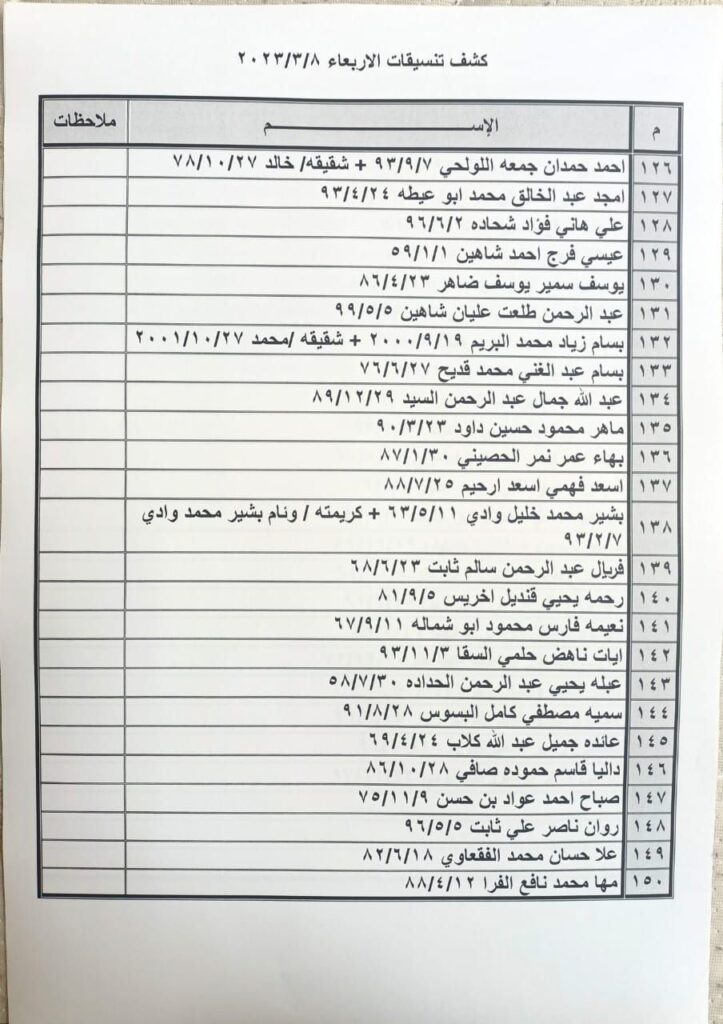 كشف تنسيقات الاربعاء ٢٠٢٣/٣/٨
م الإســـــــــــــــم ملاحظات
١٢٦ احمد حمدان جمعه اللولحي ٩٣/٩/٧ + شقيقه/ خالد ٧٨/١٠/٢٧
١٢٧ امجد عبد الخالق محمد ابو عيطه ٩٣/٤/٢٤
١٢٨ علي هاني فؤاد شحاده ٩٦/٦/٢
١٢٩ عيسي فرج احمد شاهين ٥٩/١/١
١٣٠ يوسف سمير يوسف ضاهر ٨٦/٤/٢٣
١٣١ عبد الرحمن طلعت عليان شاهين ٩٩/٥/٥
١٣٢ بسام زياد محمد البريم ٢٠٠٠/٩/١٩ + شقيقه /محمد ٢٠٠١/١٠/٢٧
١٣٣ بسام عبد الغني محمد قديح ٧٦/٦/٢٧
١٣٤ عبد الله جمال عبد الرحمن السيد ٨٩/١٢/٢٩
١٣٥ ماهر محمود حسين داود ٩٠/٣/٢٣
١٣٦ بهاء عمر نمر الحصيني ٨٧/١/٣٠
١٣٧ اسعد فهمي اسعد ارحيم ٨٨/٧/٢٥
١٣٨ بشير محمد خليل وادي ٦٣/٥/١١ + كريمته / ونام بشير محمد وادي
٩٣/٢/٧
١٣٩ فريال عبد الرحمن سالم ثابت ٦٨/٦/٢٣
١٤٠ رحمه يحيي قنديل اخريس ٨١/٩/٥
١٤١ نعيمه فارس محمود ابو شماله ٦٧/٩/١١
١٤٢ ايات ناهض حلمي السقا ٩٣/١١/٣
١٤٣ عبله يحيي عبد الرحمن الحداده ٥٨/٧/٣٠
١٤٤ سميه مصطفي كامل البسوس ٩١/٨/٢٨
١٤٥ عائده جميل عبد الله كلاب ٦٩/٤/٢٤
١٤٦ داليا قاسم حموده صافي ٨٦/١٠/٢٨
١٤٧ صباح احمد عواد بن حسن ٧٥/١١/٩
١٤٨ روان ناصر علي ثابت ٩٦/٥/٥
١٤٩ علا حسان محمد الفقعاوي ٨٢/٦/١٨
١٥٠ مها محمد نافع الفرا ٨٨/٤/١٢